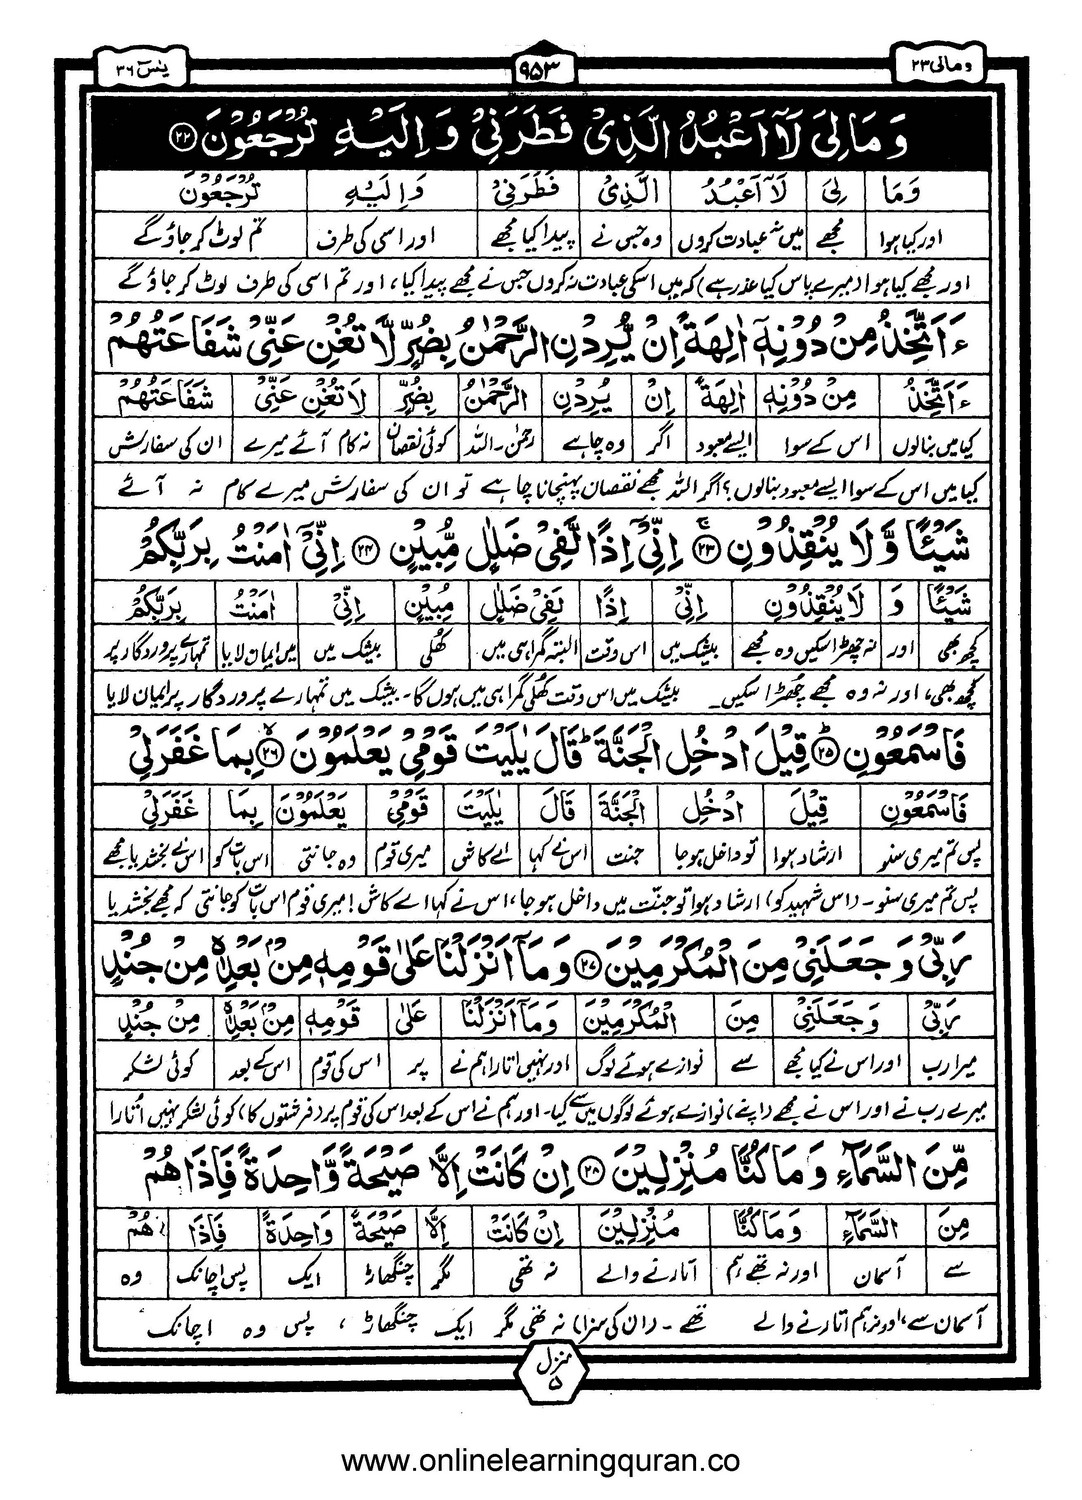 یٰسٓ ۳۶
۹۵۳
ومالی ۲۳
وَ مَا لِیَ لَاۤ اَعْبُدُ الَّذِیْ فَطَرَنِیْ وَ اِلَیْهِ تُرْجَعُوْنَ ﴿۲۲﴾
وَمَا لِیَ لَاۤ اَعْبُدُ الَّذِیْ فَطَرَنِیْ وَاِلَیْهِ تُرْجَعُوْنَ
اور کیا ہوا مجھے میں نہ عبادت کروں وہ جس نے پیدا کیا مجھے اور اسی کی طرف تم لوٹ کر جاؤ گے
اور مجھے کیا ہوا (میرے پاس کیا عذر ہے) کہ میں اسکی عبادت نہ کروں جس نے مجھے پیدا کیا، اور تم اسی کی طرف لوٹ کر جاؤ گے
ءَاَتَّخِذُ مِنْ دُوْنِهٖۤ اٰلِهَةً اِنْ یُّرِدْنِ الرَّحْمٰنُ بِضُرٍّ لَّا تُغْنِ عَنِّیْ شَفَاعَتُهُمْ
ءَاَتَّخِذُ مِنْ دُوْنِهٖۤ اٰلِهَةً اِنْ یُرِدْنِ الرَّحْمٰنُ بِضُرٍّ لَا تُغْنِ عَنِّیْ شَفَاعَتُهُمْ
کیا میں بنا لوں اس کے سوا ایسے معبود اگر وہ چاہے رحمٰن۔ اللہ کوئی نقصان نہ کام آئے میرے ان کی سفارش
کیا میں اس کے سوا ایسے معبود بنا لوں؟ اگر اللہ مجھے نقصان پہنچانا چاہے تو ان کی سفارش میرے کام نہ آئے
شَیْـًٔا وَّ لَا یُنْقِذُوْنِ ﴿۲۳﴾ اِنِّیْۤ اِذًا لَّفِیْ ضَلٰلٍ مُّبِیْنٍ ﴿۲۴﴾ اِنِّیْۤ اٰمَنْتُ بِرَبِّكُمْ
شَیْـًٔا وَ لَا یُنْقِذُوْنِ اِنِّیْ اِذًا لَفِیْ ضَلٰلٍ مُبِیْنٍ اِنِّیْ اٰمَنْتُ بِرَبِّكُمْ
کچھ بھی اور نہ چھڑا سکیں وہ مجھے بیشک میں اس وقت البتہ گمراہی میں کھلی بیشک میں میں ایمان لایا تمہارے پروردگار پر
کچھ بھی، اور نہ وہ مجھے چھڑا سکیں۔ بیشک میں اس وقت کھلی گمراہی میں ہوں گا۔ بیشک میں تمہارے پروردگار پر ایمان لایا
فَاسْمَعُوْنِ ﴿۲۵﴾ قِیْلَ ادْخُلِ الْجَنَّةَ ؕ قَالَ یٰلَیْتَ قَوْمِیْ یَعْلَمُوْنَ ﴿۲۶﴾ بِمَا غَفَرَ لِیْ
فَاسْمَعُوْنِ قِیْلَ ادْخُلِ الْجَنَّةَ قَالَ یٰلَیْتَ قَوْمِیْ یَعْلَمُوْنَ بِمَا غَفَرَ لِیْ
پس تم میری سنو ارشاد ہوا تو داخل ہو جا جنت اس نے کہا اے کاش میری قوم وہ جانتی اس بات کو اس نے بخش دیا مجھے
پس تم میری سنو۔ (اس شہید کو) ارشاد ہوا تو جنت میں داخل ہو جا، اس نے کہا اے کاش! میری قوم اس بات کو جانتی کہ مجھے بخش دیا
رَبِّیْ وَ جَعَلَنِیْ مِنَ الْمُكْرَمِیْنَ ﴿۲۷﴾ وَ مَاۤ اَنْزَلْنَا عَلٰی قَوْمِهٖ مِنْۢ بَعْدِهٖ مِنْ جُنْدٍ
رَبِّیْ وَجَعَلَنِیْ مِنَ الْمُكْرَمِیْنَ وَمَاۤ اَنْزَلْنَا عَلٰی قَوْمِهٖ مِنْۢ بَعْدِهٖ مِنْ جُنْدٍ
میرا رب اور اس نے کیا مجھے سے نوازے ہوئے لوگ اور نہیں اتارا ہم نے پر اس کی قوم اس کے بعد کوئی لشکر
میرے رب نے اور اس نے مجھے (اپنے) نوازے ہوئے لوگوں میں سے کیا۔ اور ہم نے اس کے بعد اس کی قوم پر (فرشتوں کا) کوئی لشکر نہیں اتارا
مِّنَ السَّمَآءِ وَ مَا كُنَّا مُنْزِلِیْنَ ﴿۲۸﴾ اِنْ كَانَتْ اِلَّا صَیْحَةً وَّاحِدَةً فَاِذَا هُمْ
مِنَ السَّمَآءِ وَمَا كُنَّا مُنْزِلِیْنَ اِنْ كَانَتْ اِلَّا صَیْحَةً وَاحِدَةً فَاِذَا هُمْ
سے آسمان اور نہ تھے ہم اتارنے والے نہ تھی مگر چنگھاڑ ایک پس اچانک وہ
آسمان سے، اور نہ ہم اتارنے والے تھے۔ (ان کی سزا) نہ تھی مگر ایک چنگھاڑ، پس وہ اچانک
منزل ۵
www.onlinelearningquran.co